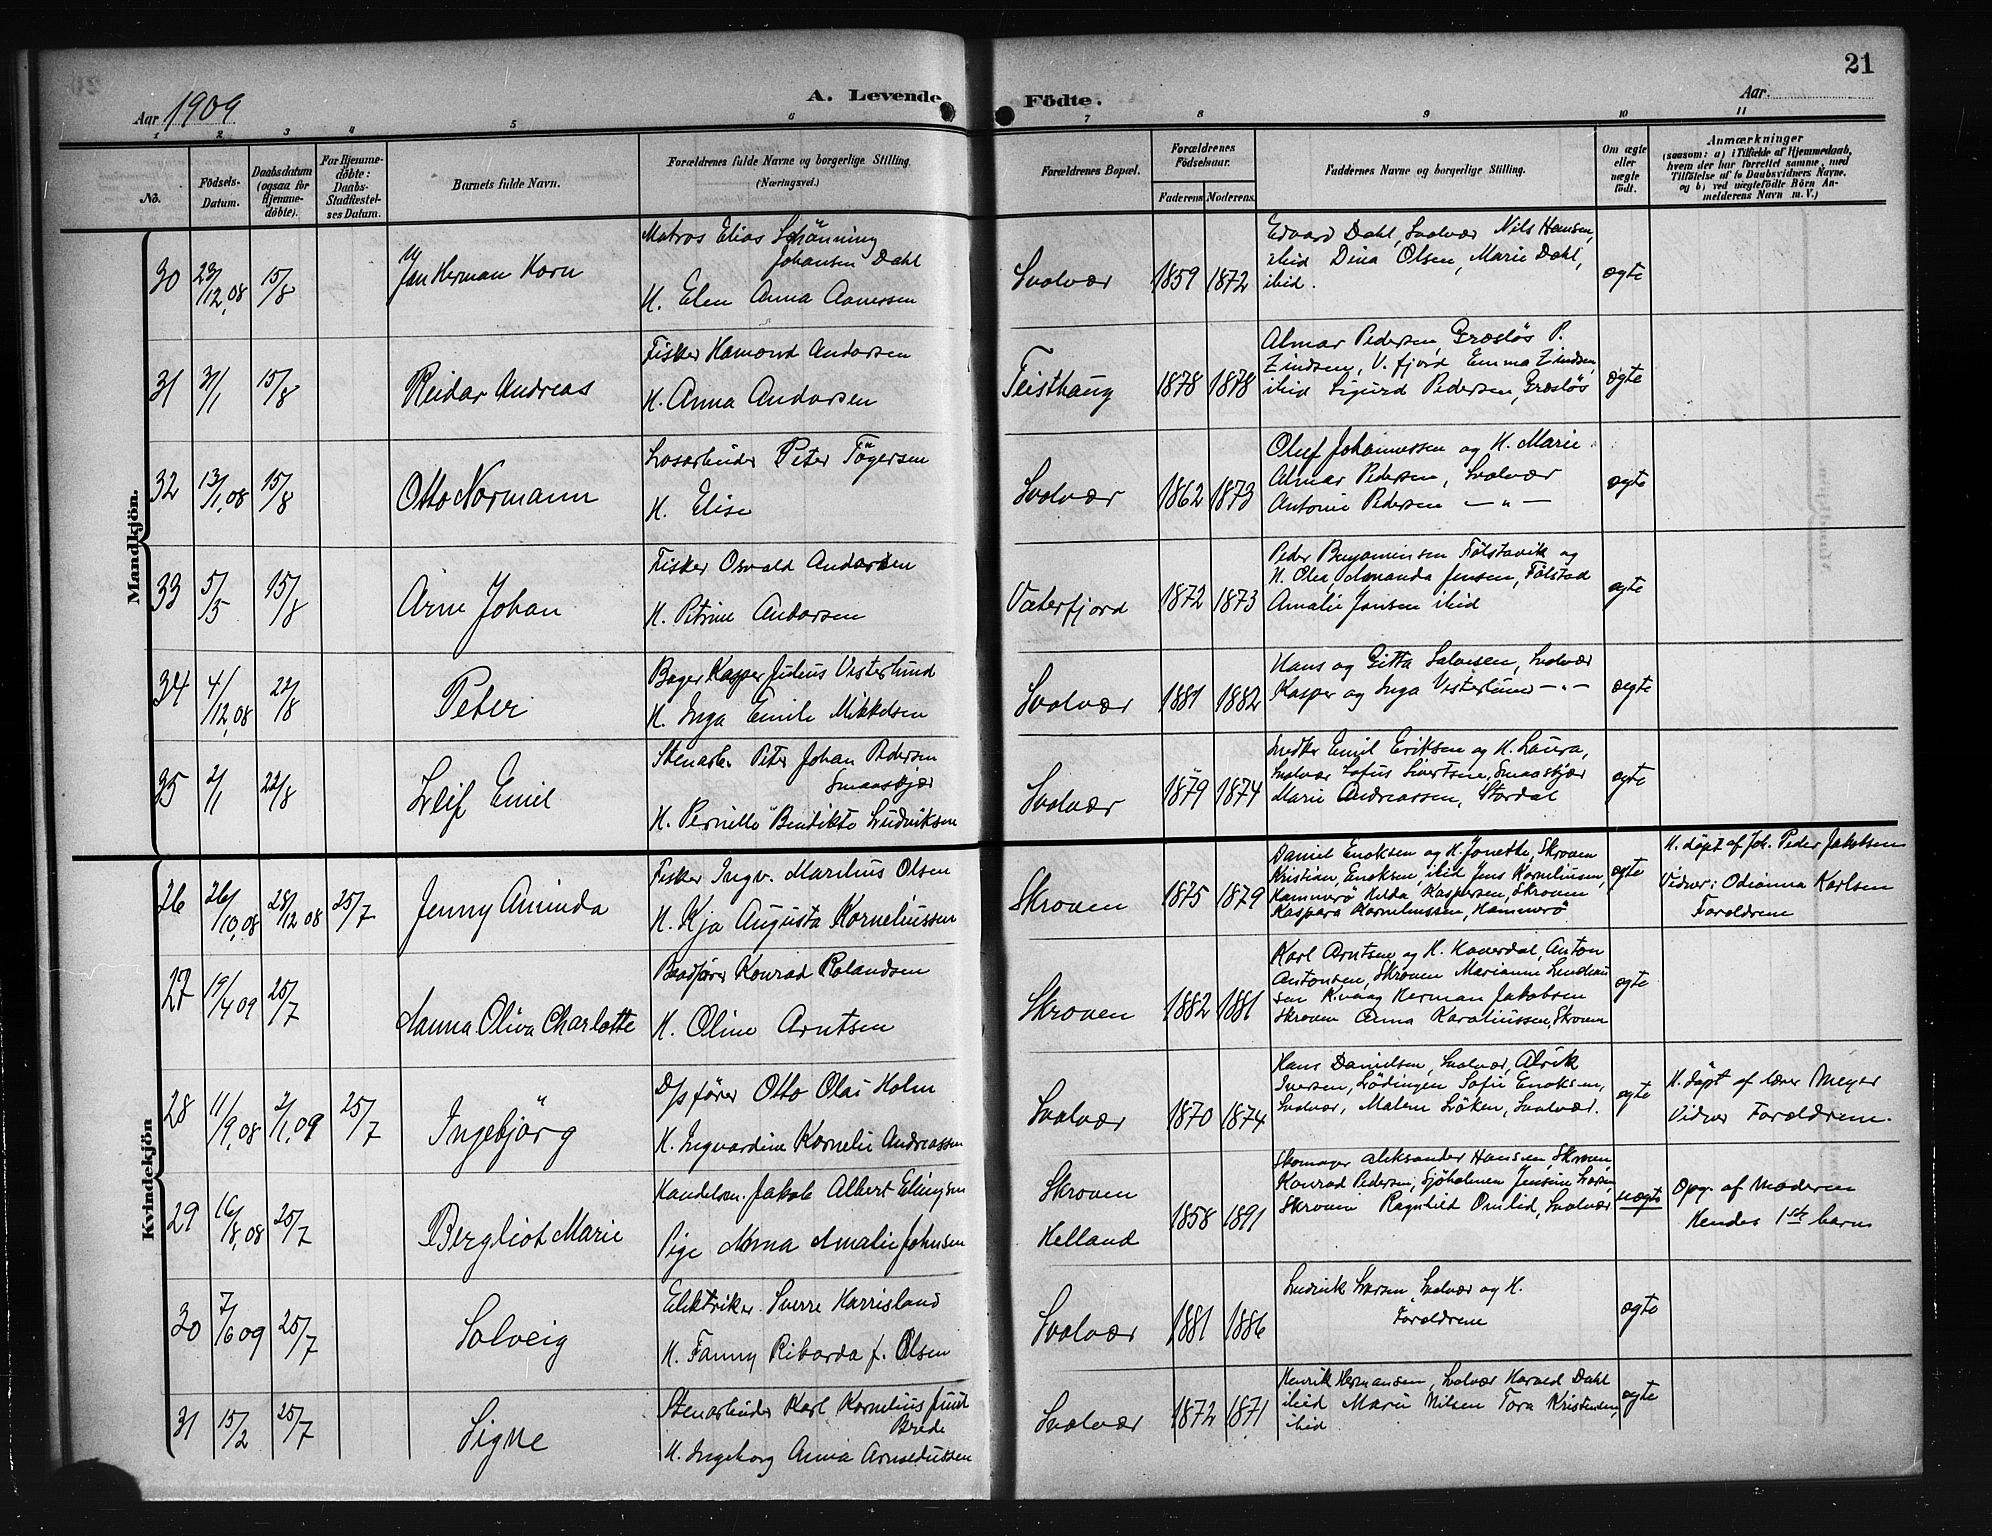 21
A. Levende Födte.
Aar 1909
Aar.
1 2 3 4 5 6 7 8 9 10 11
No.
Födsels-Datum.
Daabsdatum (ogsaa för Hjemmedöbte).
For Hjemmedöbte: Daabs-Stadfæstelses Datum.
Barnets fulde Navn.
Forældrenes fulde Navne og borgerlige Stilling. (Næringsvei.)
Forældrenes Bopæl.
Forældrenes Födselsaar.
Faderens Moderens.
Faddernes Navne og borgerlige Stilling.
Om ægte eller uægte födt.
Anmærkninger
(saasom: a) i Tilfælde af Hjemmedaab, hvem der har forrettet samme, med Tilföielse af to Daabsvidners Navne, og b) ved uægtefödte Börn Anmelderens Navn m. V.)
Mandkjön.
30 23/12,08 15/8 Jan Herman Korn
Matros Elias Schönning
Johansen Dahl
H. Elen Anna
Svolvær 1859 1872
Edvard Dahl, Svolvær Nils Hansen,
ibid Dina Olsen, Marie Dahl,
ibid.
ægte
31 3/1 15/8 Reidar Andreas
Fisker Hamond Andorsen
H. Anna Andorsen
Teisthaug 1878 1878
Almar Pedersen, Græsløs P.
Zindsen, V. fjord Emma Zindsen,
ibid Sigurd Pedersen, Græsløs
ægte
32 13/1,08 15/8 Otto Normann
Losarbeider Peter Tögersen
H. Elise
Svolvær 1862 1873
Oluf Johannessen og H. Marie
Almar Pedersen, Svolvær
Antonie Pedersen — " —
ægte
33 5/15 15/8 Arne Johan
Fisker Osvald Andorsen
H. Petrine Andorsen
Vaterfjord 1872 1873
Peder Benjaminsen Følstavik og
H. Olea, Amanda Jensen, Følstad
Amalie Jensen ibid
ægte
34 4/12,08 22/8 Peter
Bager Kasper Julius Vesterlund
H. Inga Emile Mikkelsen
Svolvær 1881 1882
Hans og Gitta Salvesen, Svolvær
Kasper og Inga Vesterlund — " —
ægte
35 2/1 22/8 Leif Emil
Stenarb. Peter Johan Pedersen
Smaaskjær
H. Pernille Bendikte Ludviksen
Svolvær 1879 1874
Snedker Emil Eriksen og H. Laura,
Svolvær Sofus Sivertsen, Smaaskjær
Marie Andreassen, Stordal
ægte
Kvindekjön
26 26/10,08 28/12 08 25/7 Jenny Aminda
Fisker Ingv. Marelius Olsen
H. Kja Augusta Korneliussen
Skroven 1875 1879
Daniel Enoksen og H. Jonette, Skroven
Kristian, Enoksen ibid Jens Korneliussen,
Hammerö Hilda Kaspersen, Skroven
Kaspara Korneliussen, Hammerö
ægte
H. döpt af Joh. Peder Jakobsen
Vidner: Odianna Karlsen
Forældrene
27 19/4 09 25/7 Nanna Oliva Charlotte
Baadfører Konrad Rolandsen
H. Oline Arntsen
Skroven 1882 1881
Karl Arntsen og H. Haverdal, Anton
Antonsen, Skroven Marianne
sen Kvaag Herman Jakobsen
Skroven Anna Karoliussen, Skroven
ægte
28 11/9,08 2/1,09 25/7 Ingebjörg
D/s fører Otto Olai Holm
H. Ingvardine Kornelie Andreassen
Svolvær 1870 1874
Hans Danielsen, Svolvær, Alvik
Iversen, Lödingen Sofie Enoksen,
Svolvær, Malene Löken, Svolvær.
ægte
H. döpt af lærer Meyer
Vidner Forældrene.
29 16/8,08 25/7 Bergliot Marie
Handelsm. Jakob Albert Elingsen
Pige Anna Amalie Johnsen
Skroven
Helland
1858 1891
Skomager Aleksander Hansen, Skroven
Konrad Pedersen, Sjöholmen Jensine Larsen,
Skroven Ragnhild Omlid, Svolvær
uægte
Opg. af Moderen
Hendes 1ste barn
30 7/6 09 25/7 Solveig
Elektriker Sverre Harrisland
H. Fanny Rikarda f. Olsen
Svolvær 1881 1886
Ludvik Larsen, Svolvær og H.
Forældrene
ægte
31 15/2 25/7 Signe
Stenarbeider Karl Kornelius Juul
Brede
H. Ingeborg Anna Arnoldussen
Svolvær 1872 1871
Henrik Hermansen, Svolvær Harald Dahl
ibid Marie Nilsen Tora Kristensen,
ibid.
ægte